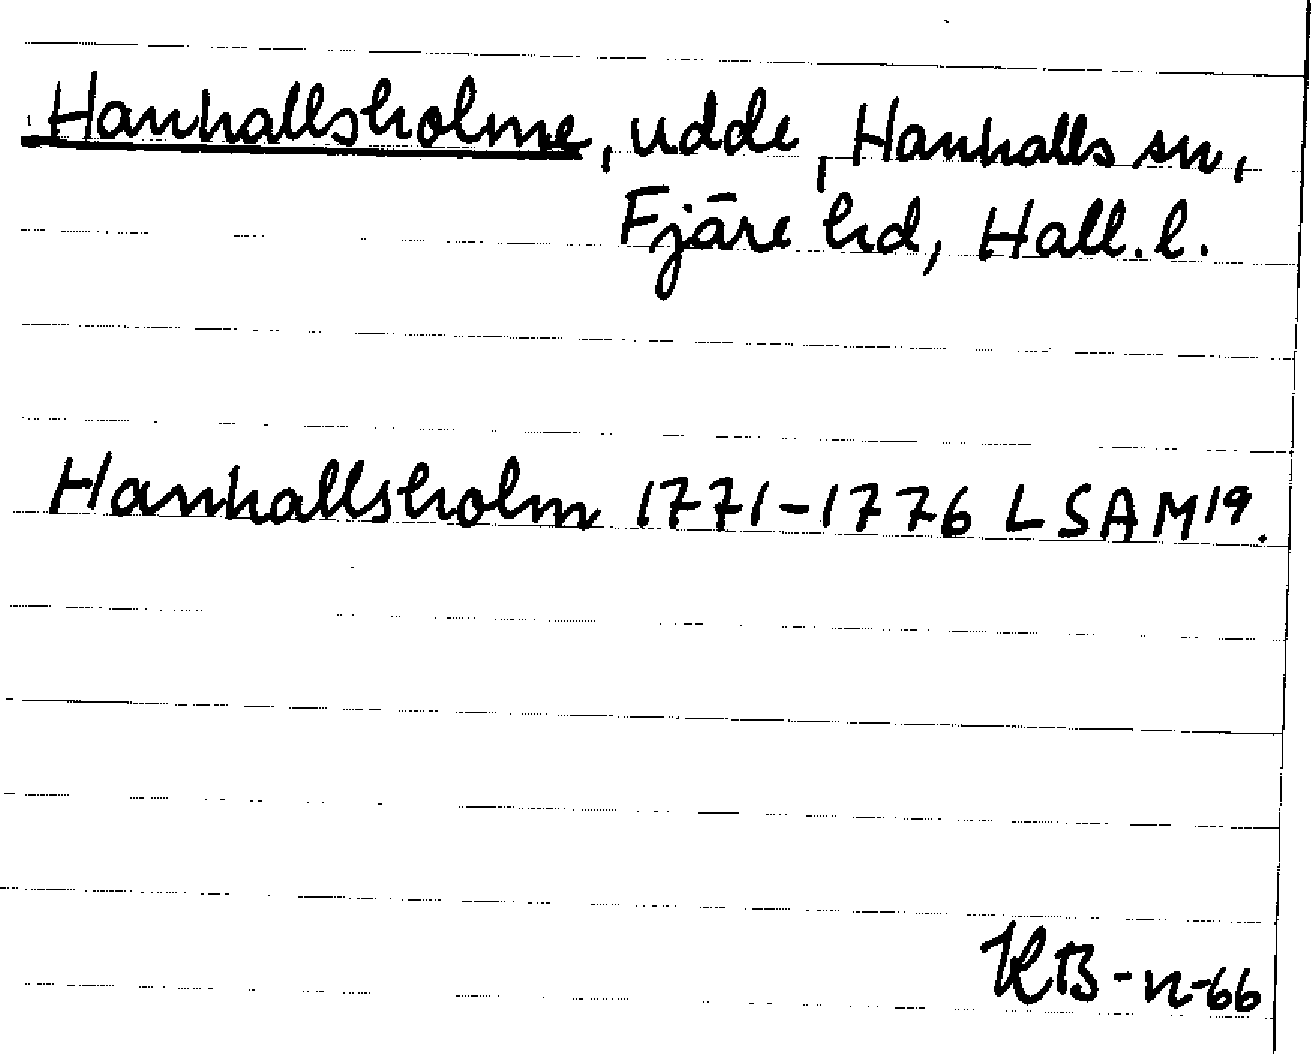 Hanhallsholme, udde, Hanhalls sn,
Fjäre hd, Hall. l.
Hanhallsholm 1771-1776 LSA M19.
KB-n-66